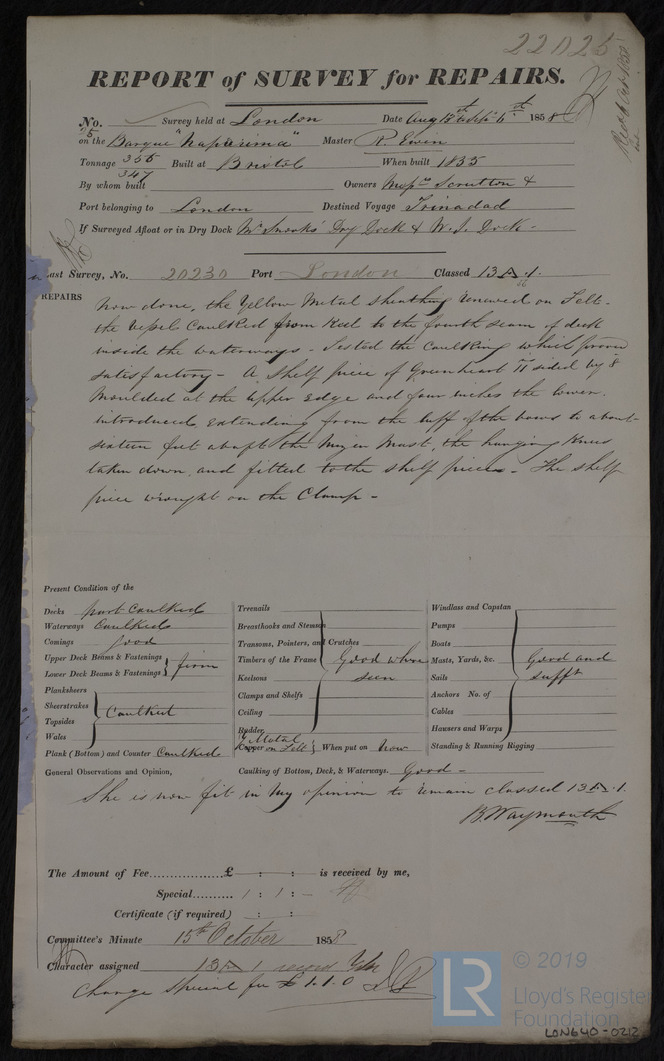 22025
Recd Oct 1858
REPORT of SURVEY for REPAIRS.
No. Survey held at London Date Aug 12th & Sept 6th 1858
on the Barque "Naparima" Master R. Ewin
Tonnage 355 Built at Bristol When built 1835
347
By whom built Owners Messrs Scrutton &
Port belonging to London Destined Voyage Trinadad
If Surveyed Afloat or in Dry Dock Mr Snooks' Dry Dock & W.I. Dock -
Last Survey, No. 20230 Port London Classed 13 A 1.
REPAIRS
Now done, the Yellow Metal Sheathing renewed on Felt.
the Vessel Caulked from Keel to the fourth seam of deck
inside the waterways - Tested the Caulking which proved
satisfactory - A Shelf piece of Greenheart 11 sided by 8
Moulded at the upper Edge and four inches the lower.
introduced extending from the luff of the bows to about
sixteen feet abaft the Mizen Mast, the hanging Knees
taken down and fitted to the shelf pieces - The shelf
piece wrought on the Clamp -
Present Condition of the
Decks part Caulked
Waterways Caulked
Comings good
Upper Deck Beams & Fastenings
Lower Deck Beams & Fastenings } firm
Planksheers
Sheerstrakes
Topsides } Caulked
Wales
Plank (Bottom) and Counter Caulked
Treenails
Breasthooks and Stemson
Transoms, Pointers, and Crutches
Timbers of the Frame } Good where
Keelsons seen
Clamps and Shelfs
Ceiling
Rudder
Y. Metal
Copper on Felt } When put on Now
Windlass and Capstan
Pumps
Boats
Masts, Yards, &c. } Good and
Sails sufft
Anchors No. of
Cables
Hawsers and Warps
Standing & Running Rigging
General Observations and Opinion, Caulking of Bottom, Deck, & Waterways. Good -
She is now fit in my opinion to remain classed 13 A 1.
B. Waymouth
The Amount of Fee...............£ : : is received by me,
Special.......... 1 : 1 : -
Certificate (if required) : :
Committee's Minute 15th October 1858
Character assigned 13 A 1
Charge Special fee £ 1.1.0
LR
© 2019
Lloyd's Register
Foundation
LON640-0212